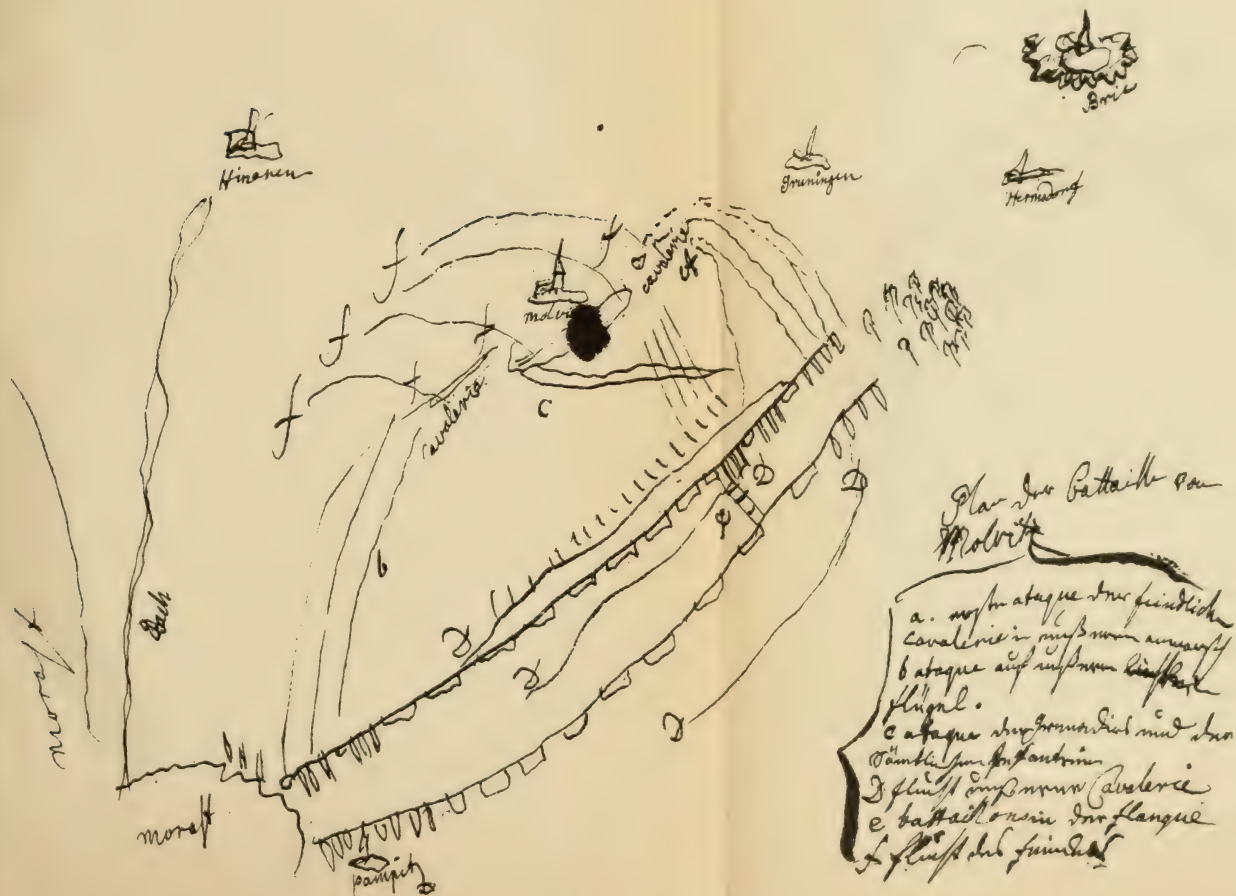 Brie
Hineren
Gruningen
Hermsdorf
f
f
cavalerie
a
molvi
f
f
f
cavalerie
C
b
D
D
e
D
D
D
Bach
morast
morast
pampitz
Plan der battaille von
Molvitz
a. erste ataque der feindlichen
cavalerie in unßerem anmarsch
b ataque auf unßeren
flügel.
c ataque der grenadirs und der
sämtlichen Infanterie
D flucht unßerer Cavalerie
e battaillons in der flanque
f flucht des feindes